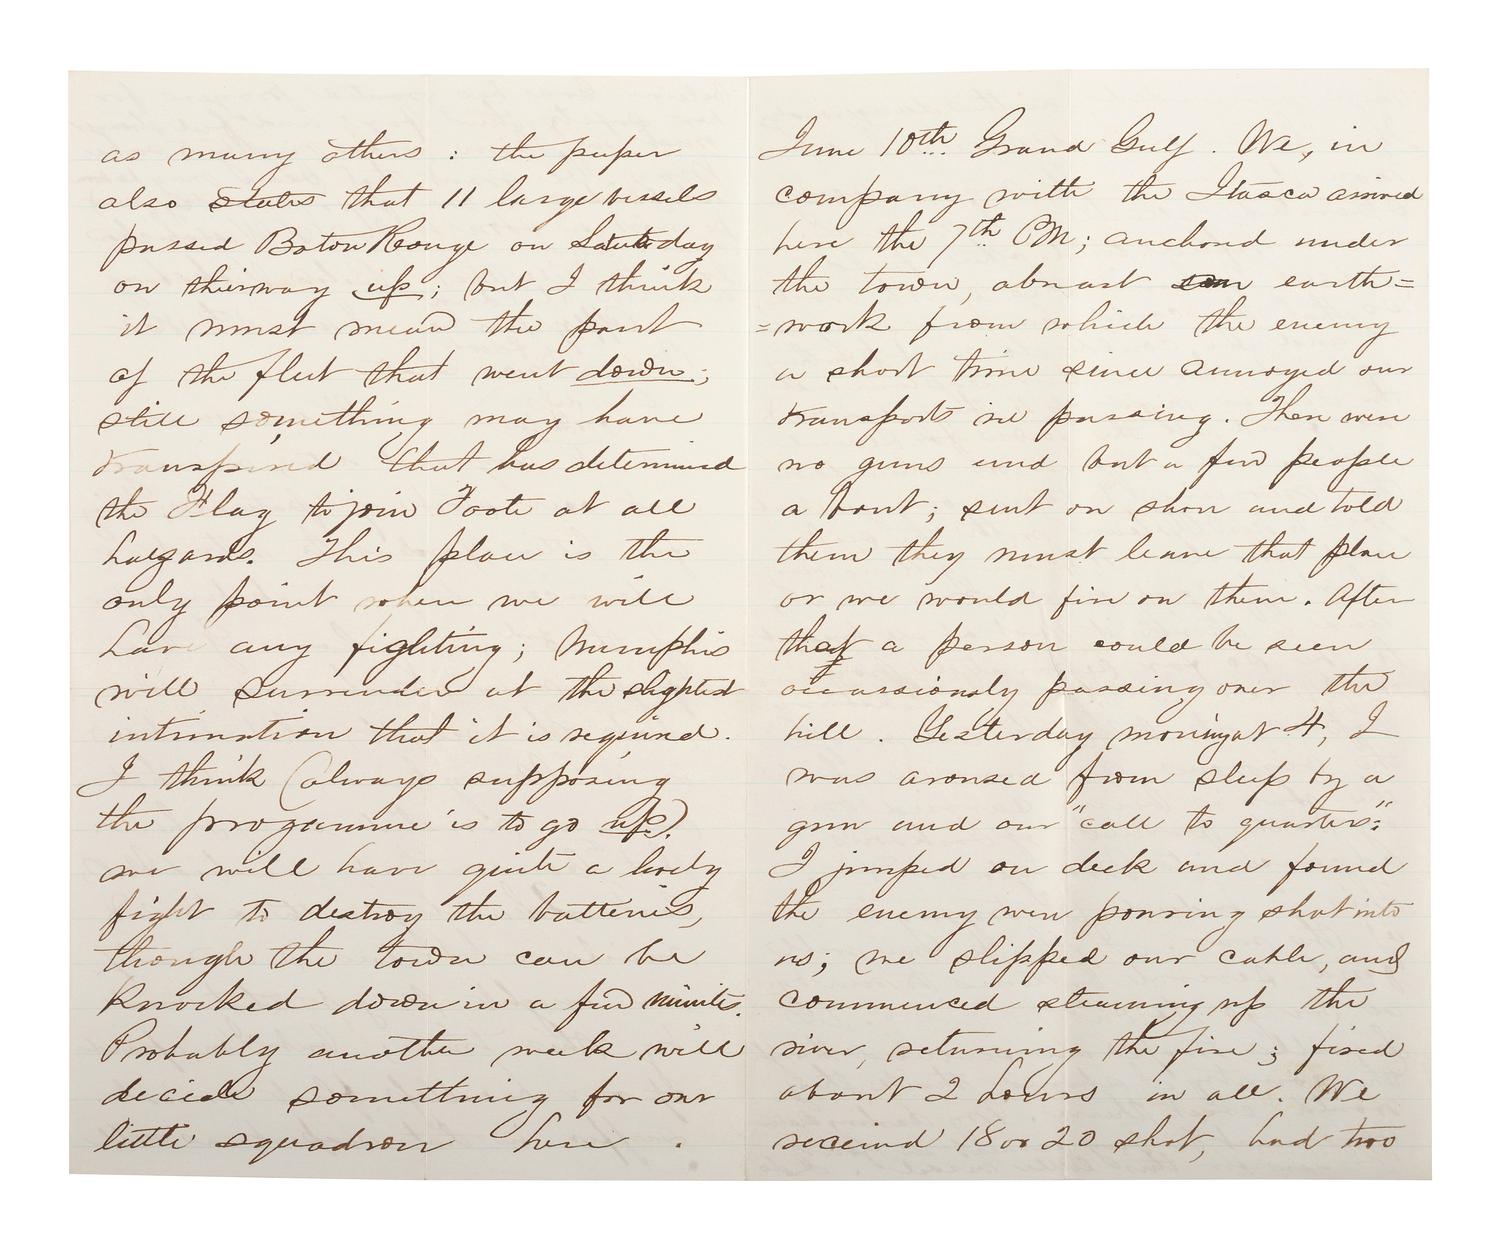 as many others : the paper
also states that 11 large vessels
passed Baton Rouge on Saturday
on their way up; but I think
it must mean the part
of the fleet that went down;
still something may have
transpired that has determined
the Flag to join Foote at all
hazards. This place is the
only point where we will
have any fighting; Memphis
will surrender at the slightest
intimation that it is required.
I think (always supposing
the programme is to go up)
we will have quite a lively
fight to destroy the batteries,
though the town can be
knocked down in a few minutes.
Probably another week will
decide something for our
little squadron here .
June 10th Grand Gulf. We, in
company with the Itasca arrived
here the 7th PM; anchored under
the town, abreast earth=
=work from which the enemy
a short time since annoyed our
transports in passing. There were
no guns and but a few people
about; sent on shore and told
them they must leave that place
or we would fire on them. After
that a person could be seen
occassionaly passing over the
hill. Yesterday morning at 4, I
was aroused from sleep by a
gun and our "call to quarters":
I jumped on deck and found
the enemy were pouring shot into
us; we slipped our cable, and
commenced steaming up the
river, returning the fire; fired
about 2 hours in all. We
received 18 or 20 shot, had two